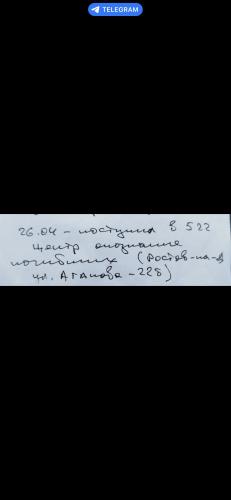 TELEGRAM
26.04 - поступил в 522
Центр опознание
погибших (Ростов-на-Д
ул. Аганова - 22б)